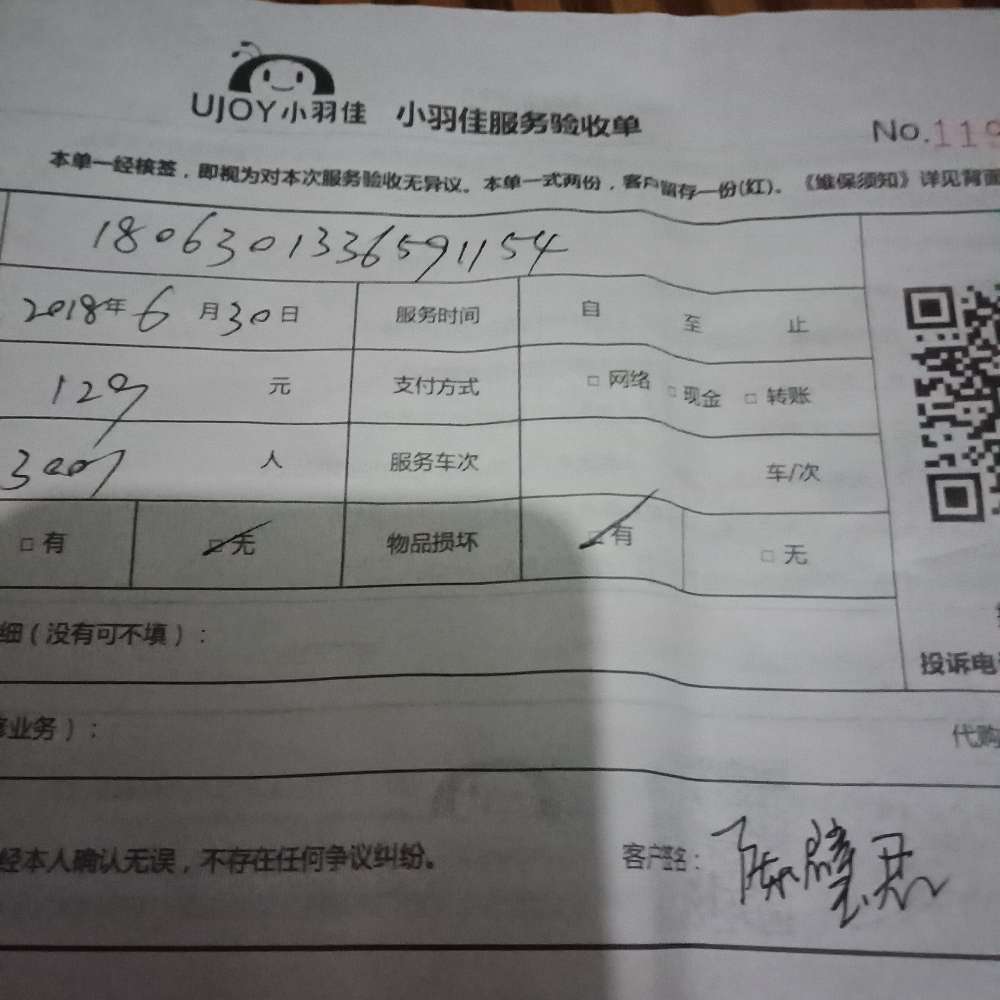 UJOY小羽佳 小羽佳服务验收单
No.119
本单一经核签，即视为对本次服务验收无异议。本单一式两份，客户留存一份(红)。《维保须知》详见背面
1806301336591154
2018年6月30日 服务时间 自 至 止
129 元 支付方式 □ 网络 □ 现金 □ 转账
人 服务车次 车/次
□ 有 □ 无 物品损坏 □ 有 □ 无
细（没有可不填）：
投诉电
修业务）：
代购
经本人确认无误，不存在任何争议纠纷。 客户签名：陈壁君